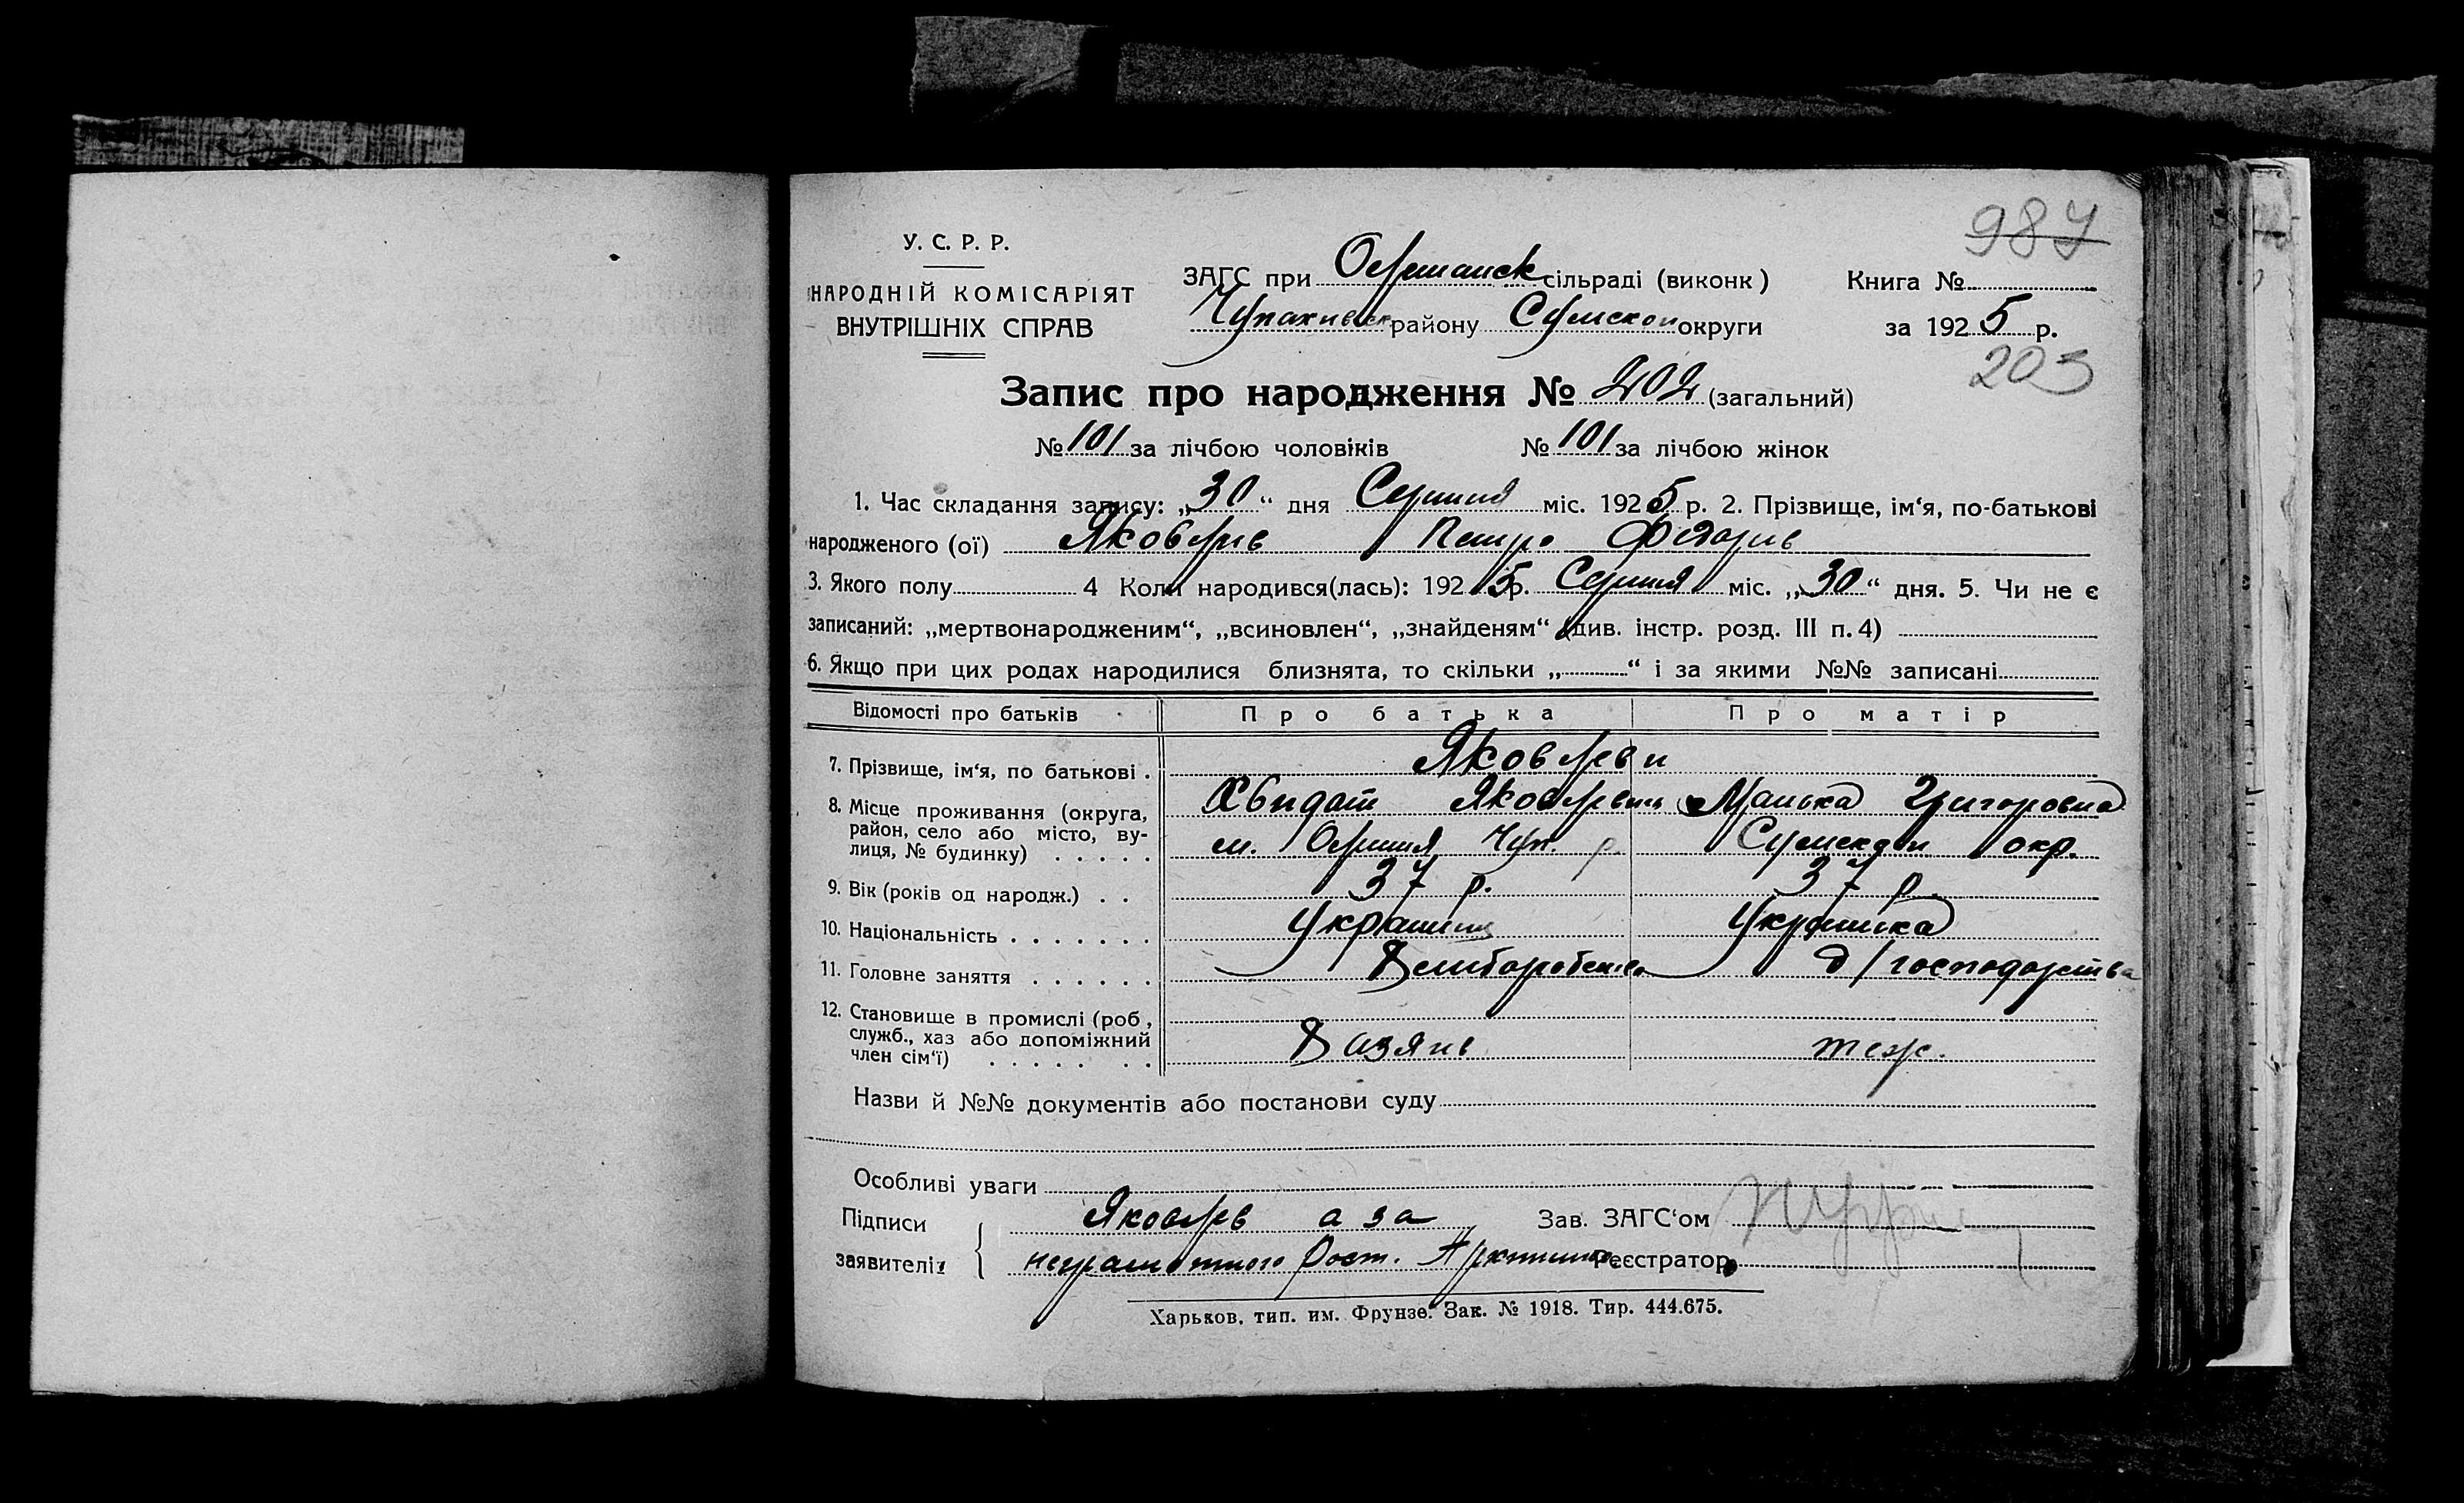 987
У. С. Р. Р.
НАРОДНІЙ КОМІСАРІЯТ
ВНУТРІШНІХ СПРАВ
ЗАГС при сільраді (виконк) Книга №
району Сумской округи за 1925 р.
203
Запис про народження № 202 (загальний)
№ 101 за лічбою чоловіків № 101 за лічбою жінок
1. Час складання запису: „30“ дня Серпня міс. 1925 р. 2. Прізвище, ім‘я, по-батькові
народженого (ої) Яковлів Петро Федорів
3. Якого полу 4 Коли народився(лась): 1925 р. Серпня міс. „30“ дня. 5. Чи не є
записаний: „мертвонародженим“, „всиновлен“, „знайденям“ (див. інстр. розд. III п. 4)
6. Якщо при цих родах народилися близнята, то скільки „ “ і за якими №№ записані
Відомості про батьків Про батька Про матір
7. Прізвище, ім‘я, по батькові . Яковлеви
8. Місце проживання (округа, Григоровна
район, село або місто, ву-
лиця, № будинку) . . . . . Чуп. р. Сумской окр.
9. Вік (років од народж.) . . 37 р. 37 р.
10. Національність . . . . . . . Українка
11. Головне заняття . . . . . . д/господарства
12. Становище в промислі (роб,
служб., хаз або допоміжний
член сім‘ї) . . . . . . . теж.
Назви й №№ документів або постанови суду
Особливі уваги
Підписи Яковлев а за Зав. ЗАГС‘ом
заявителів неграмотного рост. Реєстратор
Харьков. тип. им. Фрунзе. Зак. № 1918. Тир. 444.675.